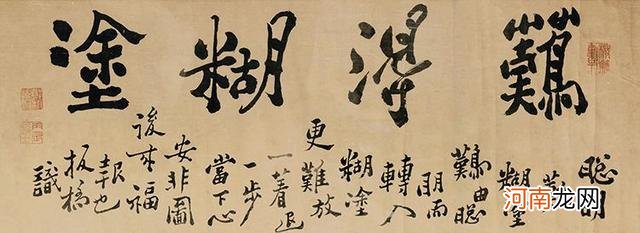 難得糊塗
聰明
難
糊塗
難由聰
明而
轉入
糊塗
更難放
一着退
一步
當下心
安非圖
後來福
報也
板橋
識
河南龙网